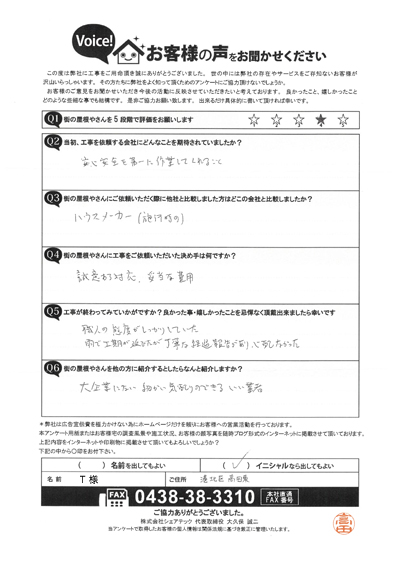 Voice!
お客様の声をお聞かせください
この度は弊社に工事をご用命頂き誠にありがとうございました。世の中には弊社の存在やサービスをご存知ないお客様が
沢山いらっしゃいます。その方たちに弊社をよく知って頂くためのアンケートにご協力頂けないでしょうか。
お客様のご意見をお聞かせいただき今後の活動に反映させていただきたいと考えております。良かったこと、嬉しかったこと
どのような些細な事でも結構です。是非ご協力お願い致します。出来るだけ具体的に書いて頂ければ幸いです。
Q1 街の屋根やさんを5段階で評価をお願いします ☆ ☆ ☆ ★ ☆
Q2 当初、工事を依頼する会社にどんなことを期待されていましたか?
安心安全を第一に作業してくれること
Q3 街の屋根やさんにご依頼いただく際に他社と比較しました方はどこの会社と比較しましたか?
ハウスメーカー(施行時の)
Q4 街の屋根やさんに工事をご依頼いただいた決め手は何ですか?
誠意ある対応、妥当な費用
Q5 工事が終わってみていかがですか?良かった事・嬉しかったことを忌憚なく頂戴出来ましたら幸いです
職人の態度がしっかりしていた
雨で工期が延びたが丁寧な経過報告があり心配しなかった
Q6 街の屋根やさんを他の方に紹介するとしたらなんと紹介しますか?
大企業にない細かい気配りのできるいい業者
*弊社は広告宣伝費を極力かけない為にホームページだけを頼りにお客様への営業活動を行っております。
本アンケート用紙またはお客様宅の調査風景や施工状況、お客様の顔写真を随時ブログ形式のインターネットに掲載させて頂いております。
上記内容をインターネットや印刷物に掲載させて頂いてもよろしいでしょうか?
下記の中から〇印をお付け下さい。
( ) 名前を出してもよい ( ✓ ) イニシャルなら出してもよい
名前 T様 ご住所 港北区高田東
FAX 0438-38-3310 本社直通 FAX番号
ご協力ありがとうございました。
株式会社シェアテック 代表取締役 大久保 誠二
当アンケートで取得したお客様の個人情報は関係法規に基づき厳正に管理いたします。